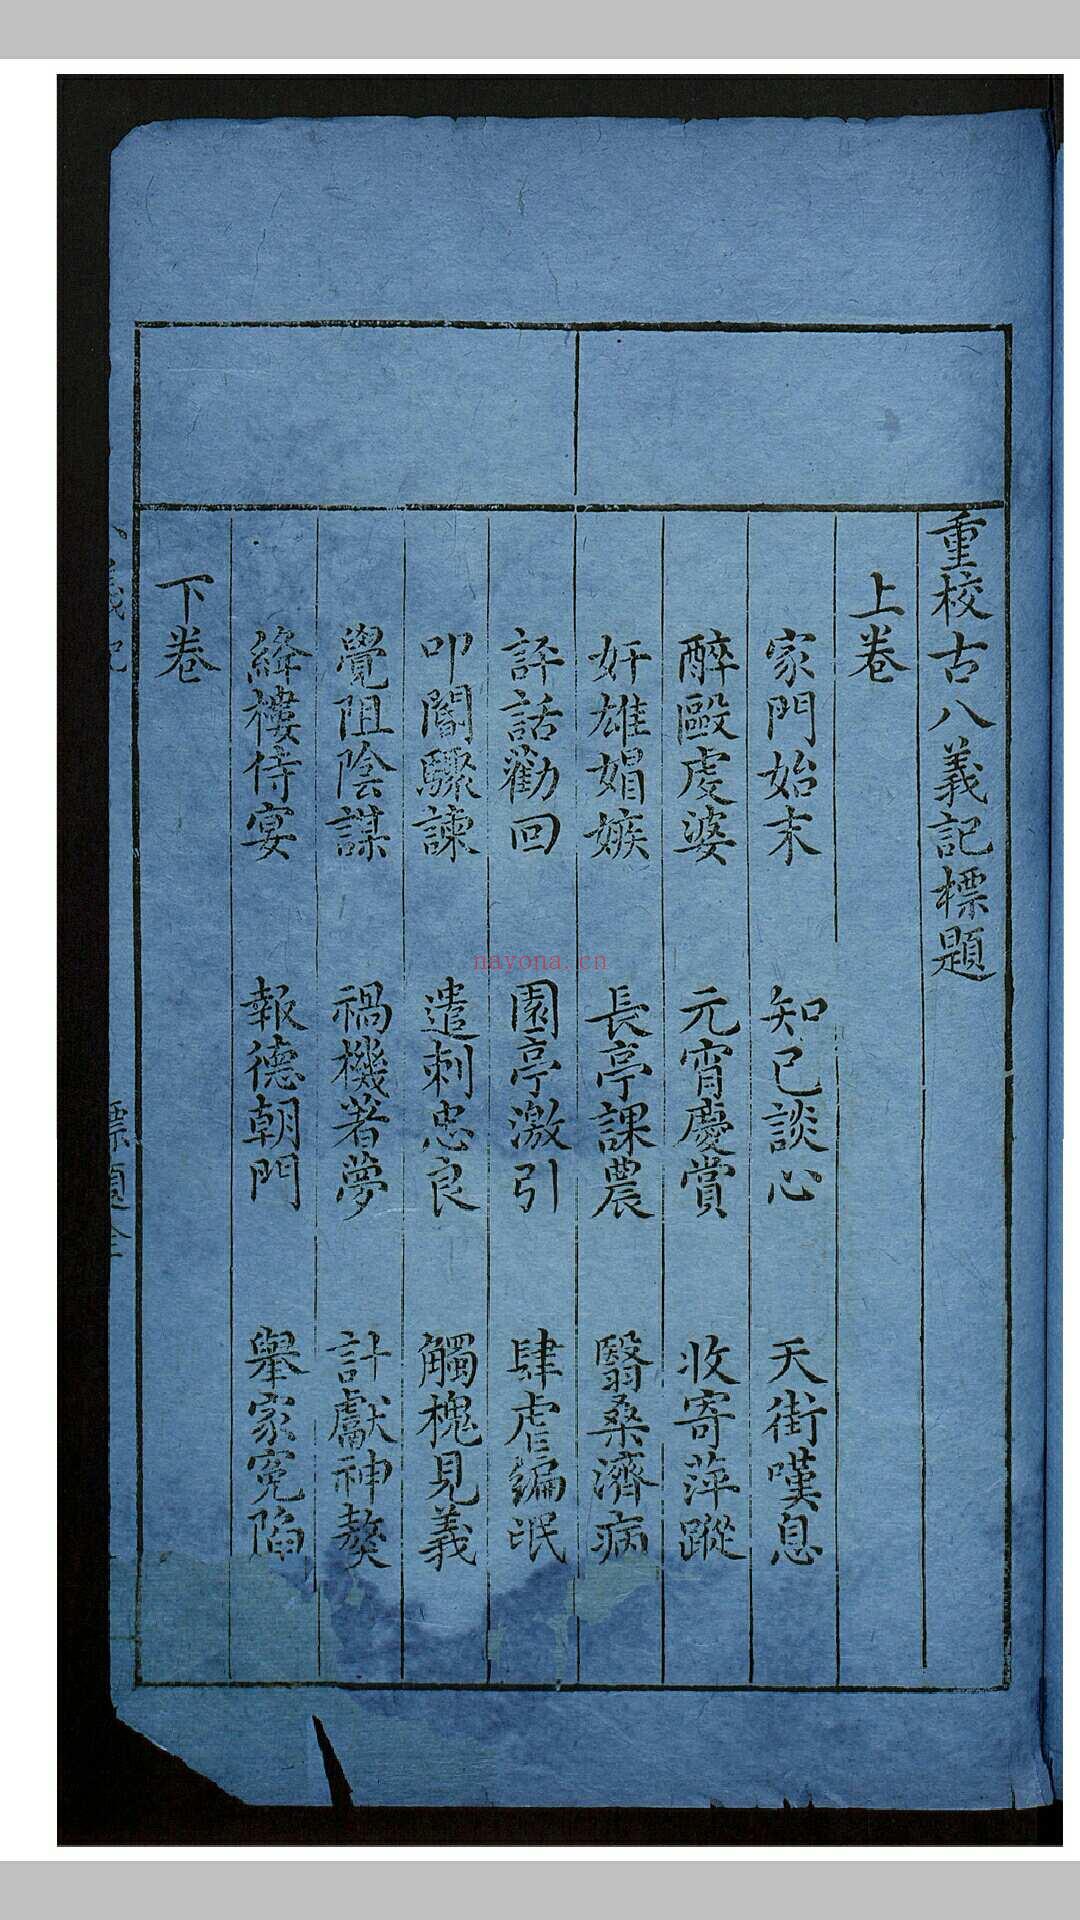 重校古八義記標題
上卷
家門始末 知己談心 天街嘆息
醉毆虔婆 元宵慶賞 收寄萍蹤
奸雄媢嫉 長亭課農 翳桑濟病
評話勸回 園亭激引 肆虐編氓
叩閽驟諫 遣刺忠良 觸槐見義
覺阻陰謀 禍機著夢 計獻神獒
絳樓侍宴 報德朝門 舉家冤陷
下卷
義記
標題 全
nayona.cn